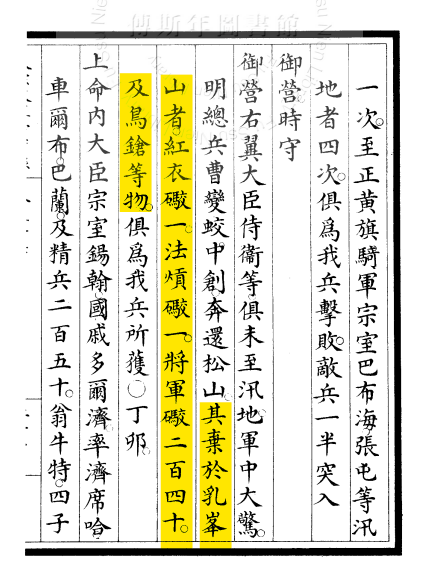 一次至正黃旗騎軍宗室巴布海張屯等汛
地者四次俱爲我兵擊敗敵兵一半突入
御營時守
御營右翼大臣侍衞等俱未至汛地軍中大驚
明總兵曹變蛟中創奔還松山其棄於乳峯
山者紅衣礮一法熕礮一將軍礮二百四十
及鳥鎗等物俱爲我兵所獲〇丁卯
上命內大臣宗室錫翰國戚多爾濟率濟席哈
車爾布巴蘭及精兵二百五十翁牛特四子
傅斯年圖書館